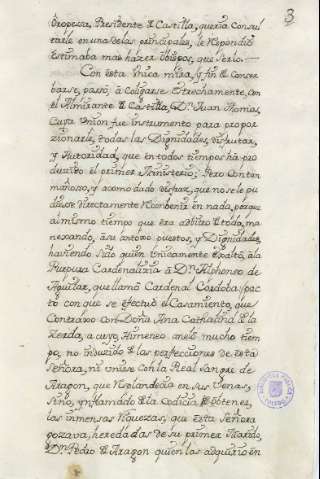 3
Oropesa, Presidente de Castilla, queria consul
tarle en una de las principales, le respondio
Estimaba mas hazer Obispos, que serlo.
Con esta unica mira, y fin de Conser
barse, passò, à Coligarse Estrechamente, con
el Almirante de Castilla, Dn. Juan Thomas,
Cuya Union fue instrumento para propor
zionarle, todas las Dignidades, disfrutar,
y Autoridad, que en todos tiempos ha pro
ducido el primer Ministerio; Pero Con tan
mañoso, y acomodado disfraz, que no se le pu
diesse directamente Reconbenir en nada, porque
al mismo tiempo que era arbitro de todo, ma
nexando, à su antoxo puestos, y Dignidades,
haviendo sido quien unicamente exaltò, à la
Purpura Cardenalizia à Dn. Alphonso de
Aguilar, que llamò Cardenal Cordoba; pac
tò con que se efectuò el Casamiento, que
Contraxo con Doña Ana Cathalina de la
Zerda, a cuyo Himeneo anelò mucho tiem
po, no inducido de las perfecciones de esta
Señora, ni unirse con la Real Sangre de
Aragon, que Resplandecia en sus Venas,
Sino, inflamado de la Codicia de obtener,
las inmensas riquezas, que esta Señora
gozava, heredadas de su primer Marido,
Dn. Pedro de Aragon quien las adquiriò en